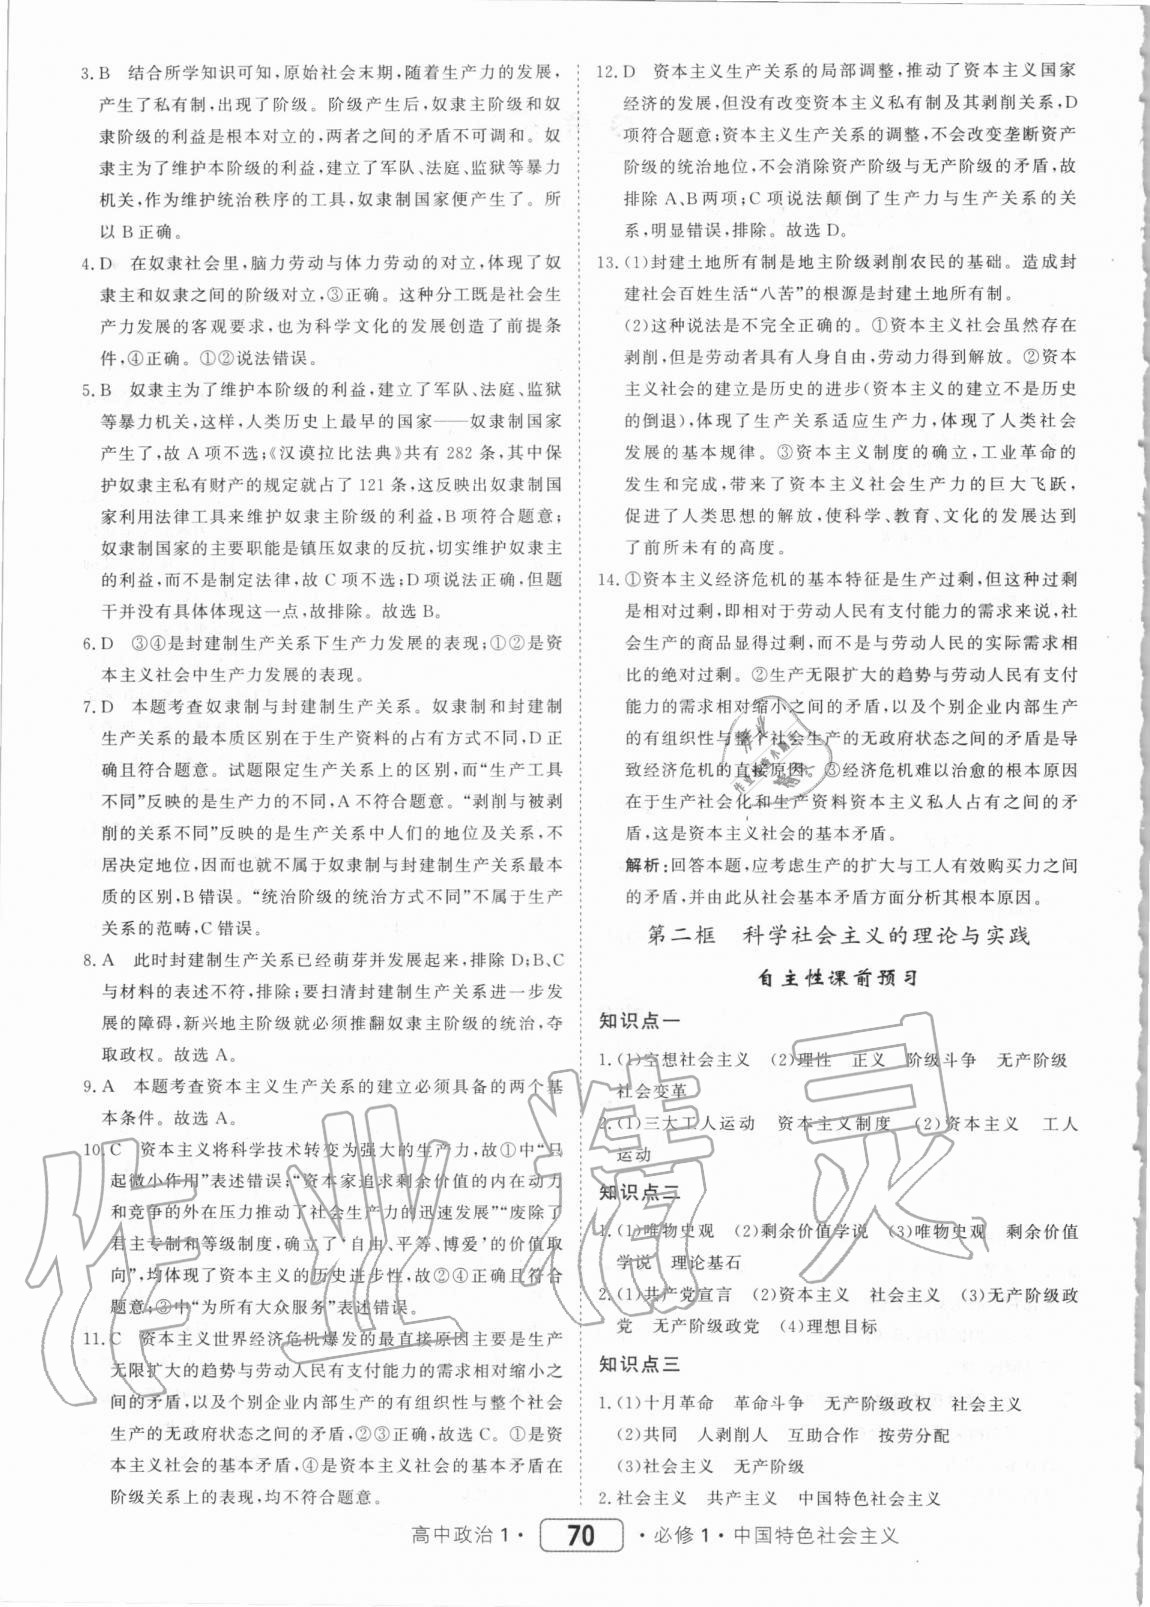 3. B　结合所学知识可知,原始社会末期,随着生产力的发展,
产生了私有制,出现了阶级。阶级产生后,奴隶主阶级和奴
隶阶级的利益是根本对立的,两者之间的矛盾不可调和。奴
隶主为了维护本阶级的利益,建立了军队、法庭、监狱等暴力
机关,作为维护统治秩序的工具,奴隶制国家便产生了。所
以 B 正确。
4. D　在奴隶社会里,脑力劳动与体力劳动的对立,体现了奴
隶主和奴隶之间的阶级对立,③正确。这种分工既是社会生
产力发展的客观要求,也为科学文化的发展创造了前提条
件,④正确。①②说法错误。
5. B　奴隶主为了维护本阶级的利益,建立了军队、法庭、监狱
等暴力机关,这样,人类历史上最早的国家——奴隶制国家
产生了,故 A 项不选;《汉谟拉比法典》共有 282 条,其中保
护奴隶主私有财产的规定就占了 121 条,这反映出奴隶制国
家利用法律工具来维护奴隶主阶级的利益,B 项符合题意;
奴隶制国家的主要职能是镇压奴隶的反抗,切实维护奴隶主
的利益,而不是制定法律,故 C 项不选;D 项说法正确,但题
干并没有具体体现这一点,故排除。故选 B。
6. D　③④是封建制生产关系下生产力发展的表现;①②是资
本主义社会中生产力发展的表现。
7. D　本题考查奴隶制与封建制生产关系。奴隶制和封建制
生产关系的最本质区别在于生产资料的占有方式不同,D正
确且符合题意。试题限定生产关系上的区别,而“生产工具
不同”反映的是生产力的不同,A 不符合题意。“剥削与被剥
削的关系不同”反映的是生产关系中人们的地位及关系,不
居决定地位,因而也就不属于奴隶制与封建制生产关系最本
质的区别,B错误。“统治阶级的统治方式不同”不属于生产
关系的范畴,C 错误。
8. A　此时封建制生产关系已经萌芽并发展起来,排除 D;B、C
与材料的表述不符,排除;要扫清封建制生产关系进一步发
展的障碍,新兴地主阶级就必须推翻奴隶主阶级的统治,夺
取政权。故选 A。
9. A　本题考查资本主义生产关系的建立必须具备的两个基
本条件。故选 A。
10. C　资本主义将科学技术转变为强大的生产力,故①中“只
起微小作用”表述错误;“资本家追求剩余价值的内在动力
和竞争的外在压力推动了社会生产力的迅速发展”“废除了
君主专制和等级制度,确立了‘自由、平等、博爱’的价值取
向”,均体现了资本主义的历史进步性,故②④正确且符合
题意;③中“为所有大众服务”表述错误。
11. C　资本主义世界经济危机爆发的最直接原因主要是生产
无限扩大的趋势与劳动人民有支付能力的需求相对缩小之
间的矛盾,以及个别企业内部生产的有组织性与整个社会
生产的无政府状态之间的矛盾,②③正确,故选 C。①是资
本主义社会的基本矛盾,④是资本主义社会的基本矛盾在
阶级关系上的表现,均不符合题意。
12. D　资本主义生产关系的局部调整,推动了资本主义国家
经济的发展,但没有改变资本主义私有制及其剥削关系,D
项符合题意;资本主义生产关系的调整,不会改变垄断资产
阶级的统治地位,不会消除资产阶级与无产阶级的矛盾,故
排除 A、B 两项;C 项说法颠倒了生产力与生产关系的关
系,明显错误,排除。故选 D。
13. (1)封建土地所有制是地主阶级剥削农民的基础。造成封
建社会百姓生活“八苦”的根源是封建土地所有制。
(2)这种说法是不完全正确的。①资本主义社会虽然存在
剥削,但是劳动者具有人身自由,劳动力得到解放。②资本
主义社会的建立是历史的进步(资本主义的建立不是历史
的倒退),体现了生产关系适应生产力,体现了人类社会
发展的基本规律。③资本主义制度的确立,工业革命的
发生和完成,带来了资本主义社会生产力的巨大飞跃,
促进了人类思想的解放,使科学、教育、文化的发展达到
了前所未有的高度。
14. ①资本主义经济危机的基本特征是生产过剩,但这种过剩
是相对过剩,即相对于劳动人民有支付能力的需求来说,社
会生产的商品显得过剩,而不是与劳动人民的实际需求相
比的绝对过剩。②生产无限扩大的趋势与劳动人民有支付
能力的需求相对缩小之间的矛盾,以及个别企业内部生产
的有组织性与整个社会生产的无政府状态之间的矛盾是导
致经济危机的直接原因。③经济危机难以治愈的根本原因
在于生产社会化和生产资料资本主义私人占有之间的矛
盾,这是资本主义社会的基本矛盾。
解析:回答本题,应考虑生产的扩大与工人有效购买力之间
的矛盾,并由此从社会基本矛盾方面分析其根本原因。
第二框　科学社会主义的理论与实践
自主性课前预习
知识点一
1. (1)空想社会主义　(2)理性　正义　阶级斗争　无产阶级
社会变革
2. (1)三大工人运动　资本主义制度　(2)资本主义　工人
运动
知识点二
1. (1)唯物史观　(2)剩余价值学说　(3)唯物史观　剩余价值
学说　理论基石
2. (1)共产党宣言　(2)资本主义　社会主义　(3)无产阶级政
党　无产阶级政党　(4)理想目标
知识点三
1. (1)十月革命　革命斗争　无产阶级政权　社会主义
(2)共同　人剥削人　互助合作　按劳分配
(3)社会主义　无产阶级
2. 社会主义　共产主义　中国特色社会主义
高中政治 1 · 70 · 必修 1 · 中国特色社会主义
作业精灵